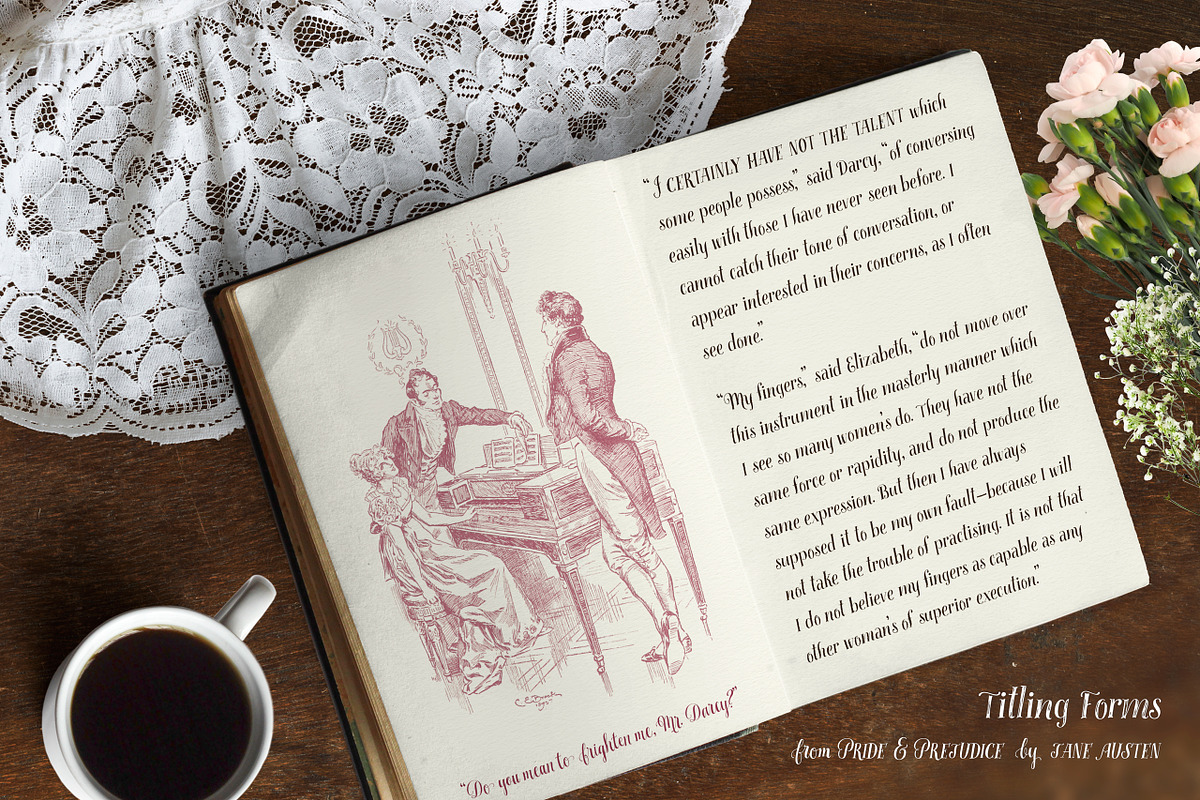 “Do you mean to frighten me, Mr. Darcy?”
“I CERTAINLY HAVE NOT THE TALENT which
some people possess,” said Darcy, “of conversing
easily with those I have never seen before. I
cannot catch their tone of conversation, or
appear interested in their concerns, as I often
see done.”
“My fingers,” said Elizabeth, “do not move over
this instrument in the masterly manner which
I see so many women's do. They have not the
same force or rapidity, and do not produce the
same expression. But then I have always
supposed it to be my own fault—because I will
not take the trouble of practising. It is not that
I do not believe my fingers as capable as any
other woman's of superior execution.”
Titling Forms
from PRIDE & PREJUDICE by JANE AUSTEN